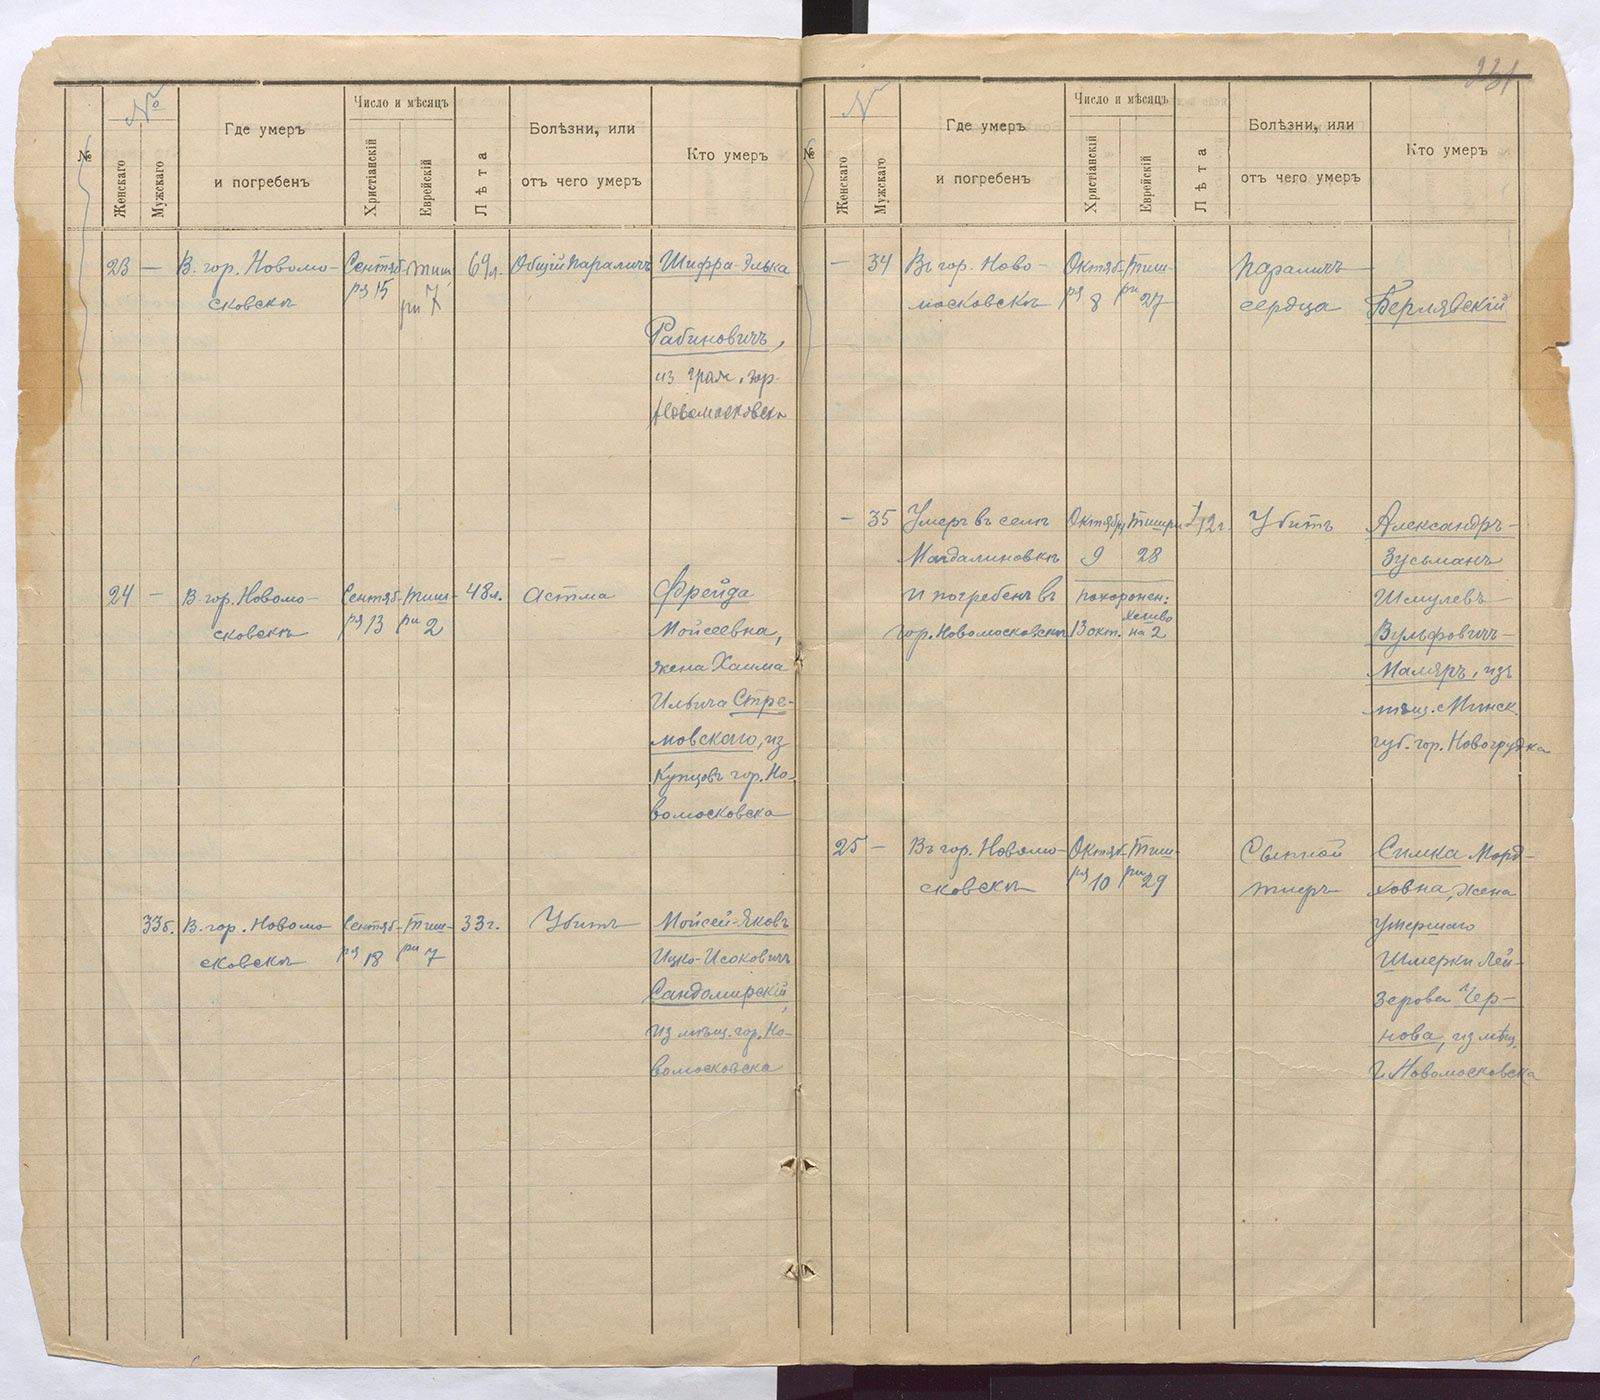 231
№
№
Женскаго
Мужскаго
Где умеръ
и погребенъ
Число и мѣсяцъ
Христіанскій
Еврейскій
Лѣта
Болѣзни, или
отъ чего умеръ
Кто умеръ
23 —
В. гор. Новомо-
сковскѣ
Сентяб-
ря 15
Тиш-
ри 7
69 л.
Общій параличъ
Шифра-Элька
Рабиновичъ,
из граж. гор.
Новомосковска
24 —
В. гор. Новомо-
сковскѣ
Сентяб-
ря 13
Тиш-
ри 2
48 л.
Астма
Фрейда
Мойсеевна,
жена Хаима
Ильича Стре-
мовскаго, из
Купцовъ гор. Но-
вомосковска
33б.
В. гор. Новомо-
сковскѣ
Сентяб-
ря 18
Тиш-
ри 7
33 г.
Убитъ
Мойсей-Яковъ
Ицко-Исаковичъ
Сандомирскій,
из мѣщ. гор. Но-
вомосковска
№
№
Женскаго
Мужскаго
Где умеръ
и погребенъ
Число и мѣсяцъ
Христіанскій
Еврейскій
Лѣта
Болѣзни, или
отъ чего умеръ
Кто умеръ
— 34
Въ гор. Ново-
московскѣ
Октяб-
ря 8
Тиш-
ри 27
Параличъ
сердца
Берлявскій
— 35
Умеръ въ селѣ
Магдалиновкѣ
и погребенъ в
гор. Новомосковскѣ
Октября
9
Тишри
28
похоронен:
13 окт.
на 2
12 г.
Убитъ
Александръ-
Зусьманъ
Шмулевъ-
Вульфовичъ-
Маляръ, изъ
мѣщ. Минск.
губ. гор. Новогрудка
25 —
Въ гор. Новомо-
сковскѣ
Октяб-
ря 10
Тиш-
ри 29
Сыпной
тифъ
Симка Морд-
ховна, жена
умершаго
Шмерки Лей-
зерова Чер-
нова, из мѣщ.
г. Новомосковска